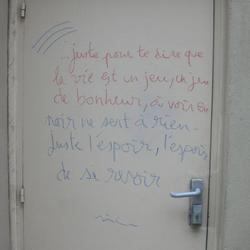 ...juste pour te dire que
la vie est un jeu, un jeu
de bonheur, à voir en
noir ne sert à rien.
Juste l'espoir, l'espoir
de se revoir